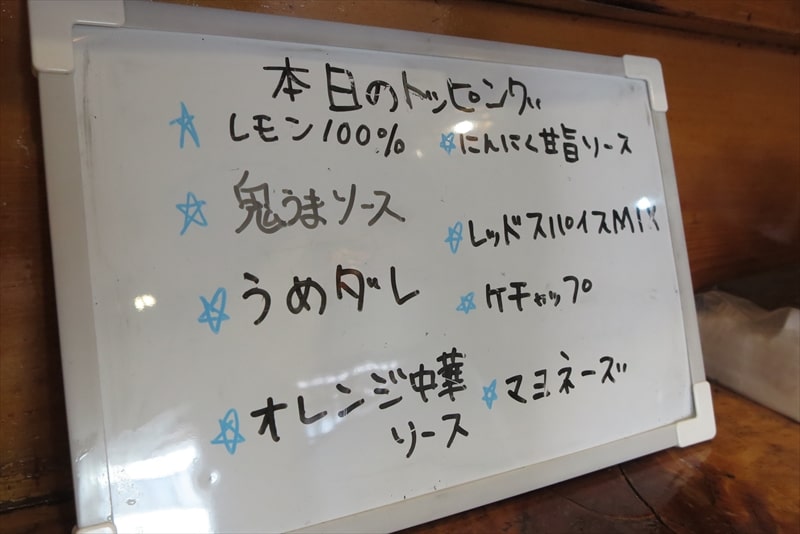 本日のトッピング
☆ レモン100%
☆ 鬼うまソース
☆ うめダレ
☆ オレンジ中華
ソース
☆ にんにく甘旨ソース
☆ レッドスパイスMIX
☆ ケチャップ
☆ マヨネーズ